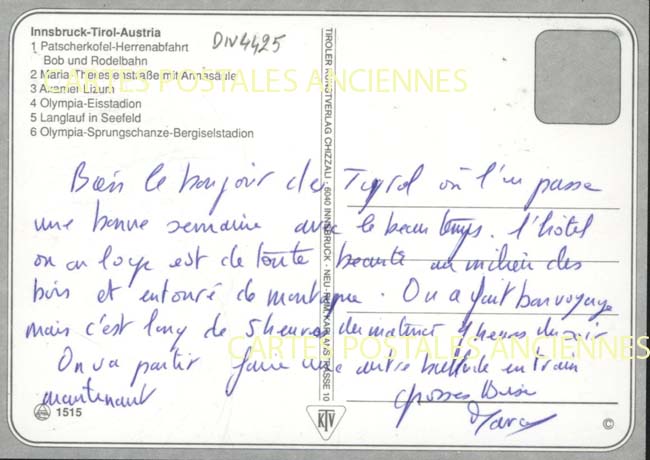 Innsbruck-Tirol-Austria
1 Patscherkofel-Herrenabfahrt
Bob und Rodelbahn
2 Maria-Theresienstraße mit Annasäule
3 Axamer Lizum
4 Olympia-Eisstadion
5 Langlauf in Seefeld
6 Olympia-Sprungschanze-Bergiselstadion
DIV4425
CARTES POSTALES ANCIENNES
TIROLER KUNSTVERLAG CHIZZALI · 6040 INNSBRUCK · NEU-RUM, KAPLANSTRASSE 10
Bien le bonjour du Tyrol où l'on passe
une bonne semaine avec le beau temps. l'hôtel
on on loge est de toute beauté au milieu des
bois et entouré de montagne. On a fait bon voyage
mais c'est long de 5 heures du matin à 9 heures du soir
CARTES POSTALES ANCIENNES
On va partir faire une autre ballade en train
maintenant
grosses Bises
1515
KTV
©